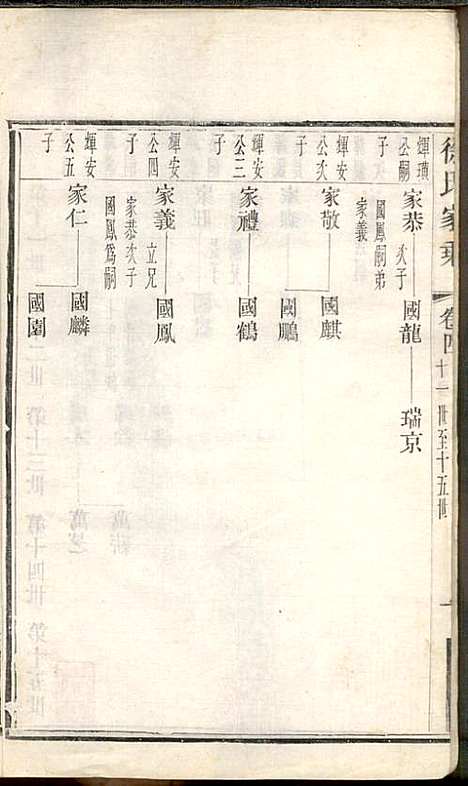 徐氏家乘
卷四 十一世至十五世
十
煇璜公嗣子
家恭 次子國鳳嗣弟家義
國龍
瑞京
煇安公次子
家敬
國麒
國鵬
煇安公三子
家禮
國鶴
煇安公四子
家義 立兄家恭次子國鳳為嗣
國鳳
煇安公五子
家仁
國麟
國園